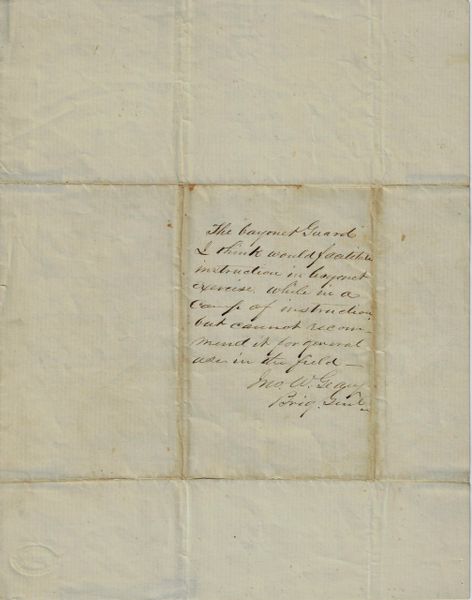 The bayonet Guard
I think would facilitate
instruction in bayonet
exercise while in a
camp of instruction,
but cannot recom-
mend it for general
use in the field —
Jno. W. Geary
Brig. Genl.